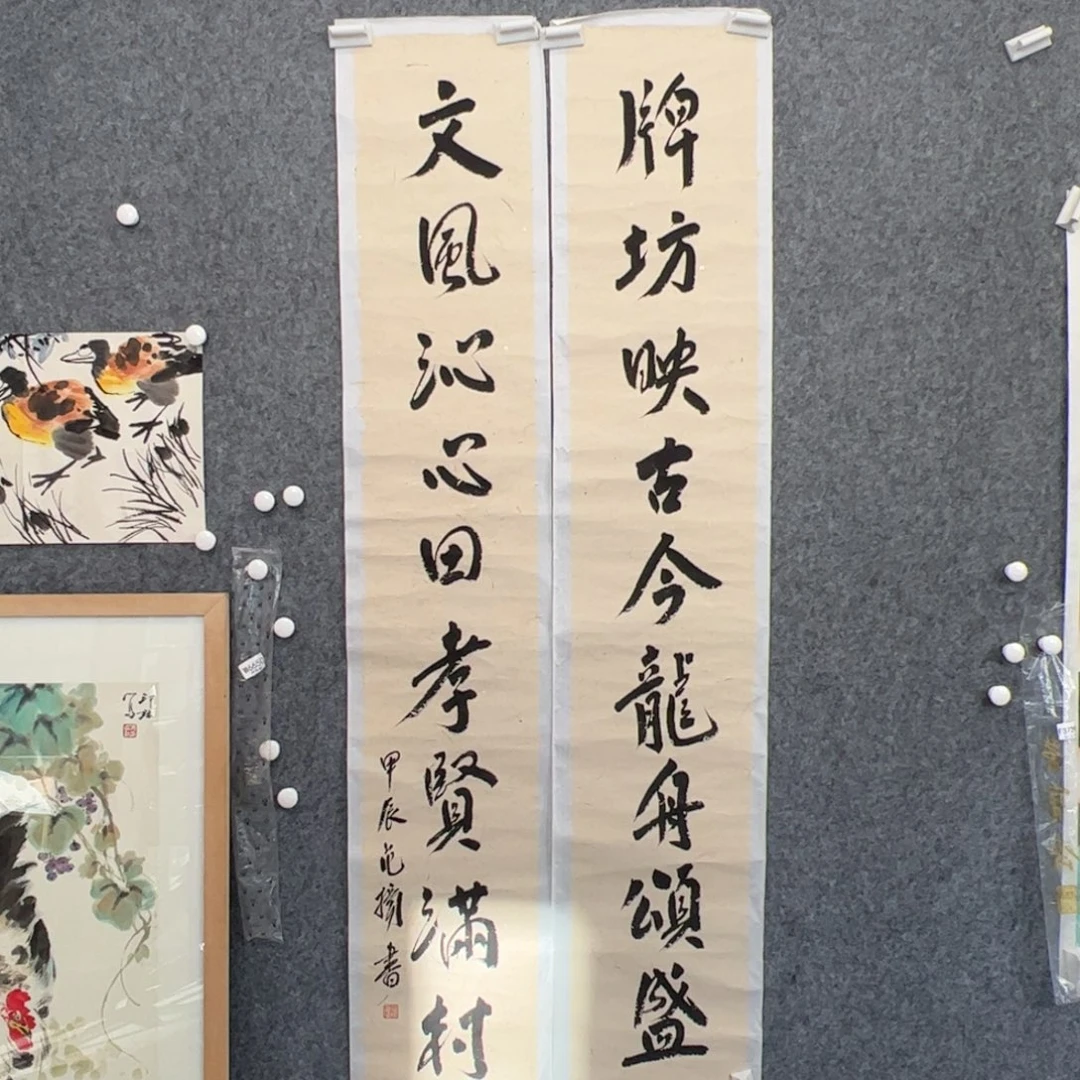 牌坊映古今龍舟頌盛
文風沁心田孝賢滿村
甲辰 范擯書